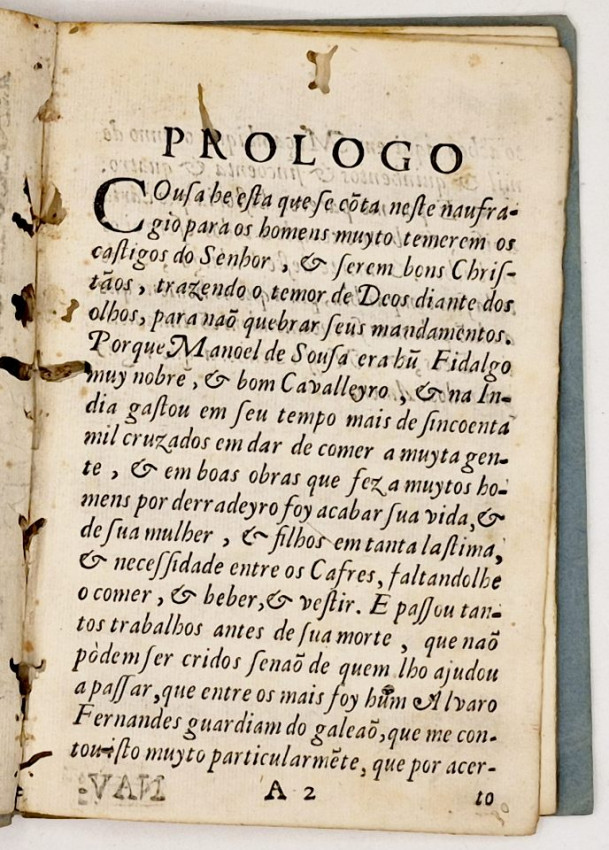 PROLOGO
COusa he esta que se cõta neste naufra-
gio para os homens muyto temerem os
castigos do Senhor, & serem bons Chris-
tãos, trazendo o temor de Deos diante dos
olhos, para naõ quebrar seus mandamentos.
Porque Manoel de Sousa era hũ Fidalgo
muy nobre, & bom Cavalleyro, & na In-
dia gastou em seu tempo mais de sincoenta
mil cruzados em dar de comer a muyta gen-
te, & em boas obras que fez a muytos ho-
mens por derradeyro foy acabar sua vida, &
de sua mulher, & filhos em tanta lastima,
& necessidade entre os Cafres, faltandolhe
o comer, & beber, & vestir. E passou tan-
tos trabalhos antes de sua morte, que naõ
pòdem ser cridos senaõ de quem lho ajudou
a passar, que entre os mais foy hum Alvaro
Fernandes guardiam do galeaõ, que me con-
tou isto muyto particularmẽte, que por acer-
A 2
to